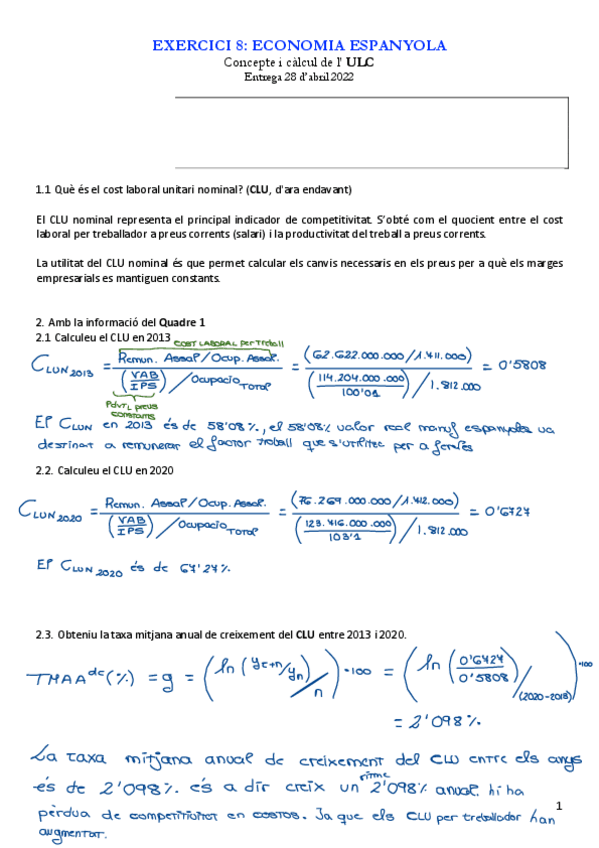 EXERCICI 8: ECONOMIA ESPANYOLA
Concepte i càlcul de l' ULC
Entrega 28 d'abril 2022
1.1 Què és el cost laboral unitari nominal? (CLU, d'ara endavant)
El CLU nominal representa el principal indicador de competitivitat. S'obté com el quocient entre el cost
laboral per treballador a preus corrents (salari) i la productivitat del treball a preus corrents.
La utilitat del CLU nominal és que permet calcular els canvis necessaris en els preus per a què els marges
empresarials es mantiguen constants.
2. Amb la informació del Quadre 1
2.1 Calculeu el CLU en 2013
COST LABORAL per Treball
CLUN 2013 = Remun. Assal / Ocup. Assal. / (VAB / IPS) / Ocupacio Total = (62.622.000.000 / 1.411.000) / (114.204.000.000 / 100'01) / 1.812.000 = 0'5808
PdvtL preus
constants
El CLUN en 2013 és de 58'08%, el 58'08% valor real manuf espanyoles va
destinat a remunerar el factor treball que s'utilitze per a ferles
2.2. Calculeu el CLU en 2020
CLUN 2020 = Remun. Assal / Ocup. Assal. / (VAB / IPS) / Ocupacio Total = (76.269.000.000 / 1.412.000) / (123.416.000.000 / 103'1) / 1.812.000 = 0'6727
El CLUN 2020 és de 67'27%.
2.3. Obteniu la taxa mitjana anual de creixement del CLU entre 2013 i 2020.
TMAA dc (%) = g = (ln (yt+n / yn) / n) · 100 = (ln (0'6727 / 0'5808) / (2020-2013)) · 100
= 2'098%.
La taxa mitjana anual de creixement del CLU entre els anys
és de 2'098%. és a dir creix un ritme 2'098% anual. hi ha
pèrdua de competitivitat en costos. Ja que els CLU per treballador han
augmentat.
1